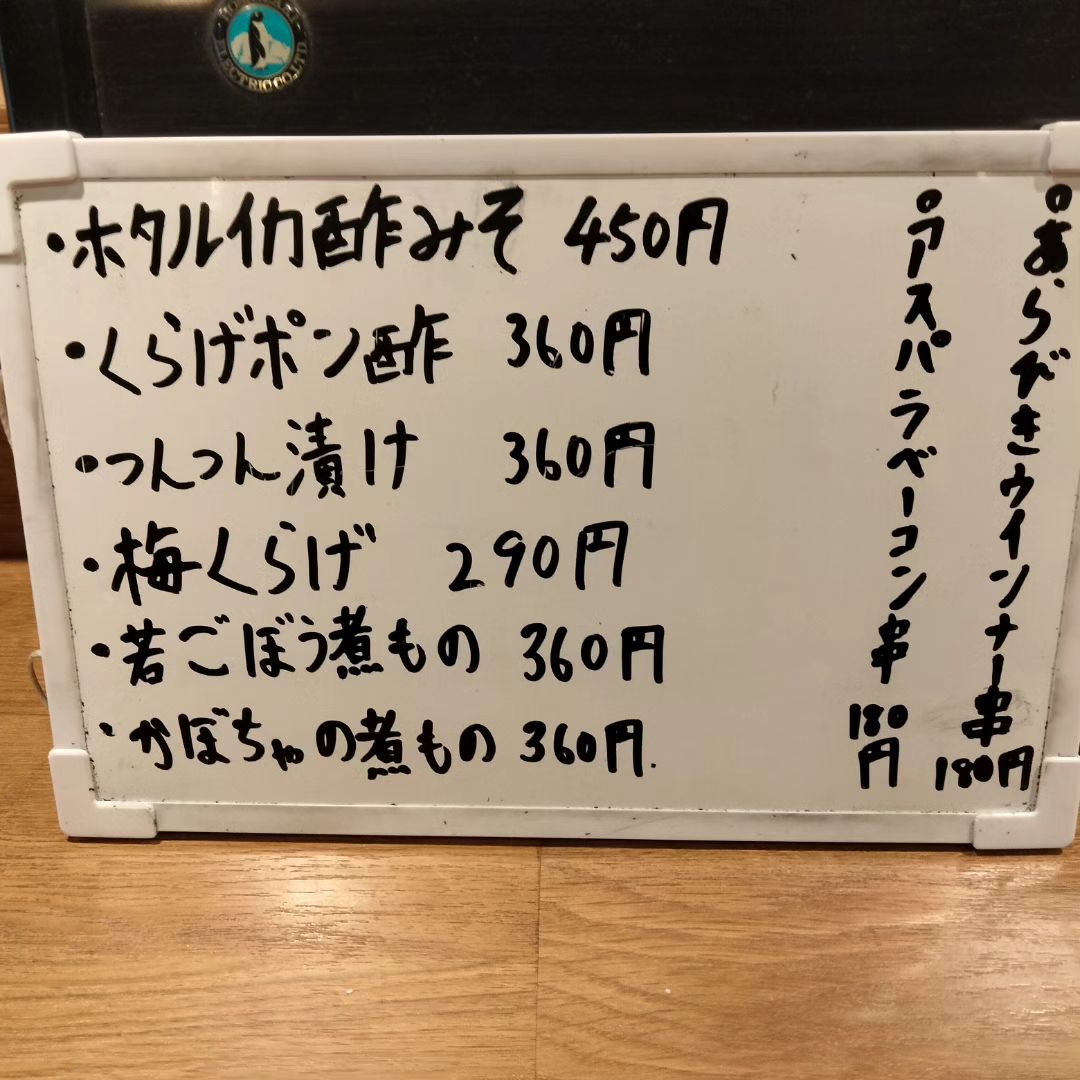 ELECTRIC CO.,LTD.
・ホタルイカ酢みそ 450円
・くらげポン酢 360円
・つんつん漬け 360円
・梅くらげ 290円
・若ごぼう煮もの 360円
・かぼちゃの煮もの 360円.
。あらびきウインナー串 180円
。アスパラベーコン串 180円